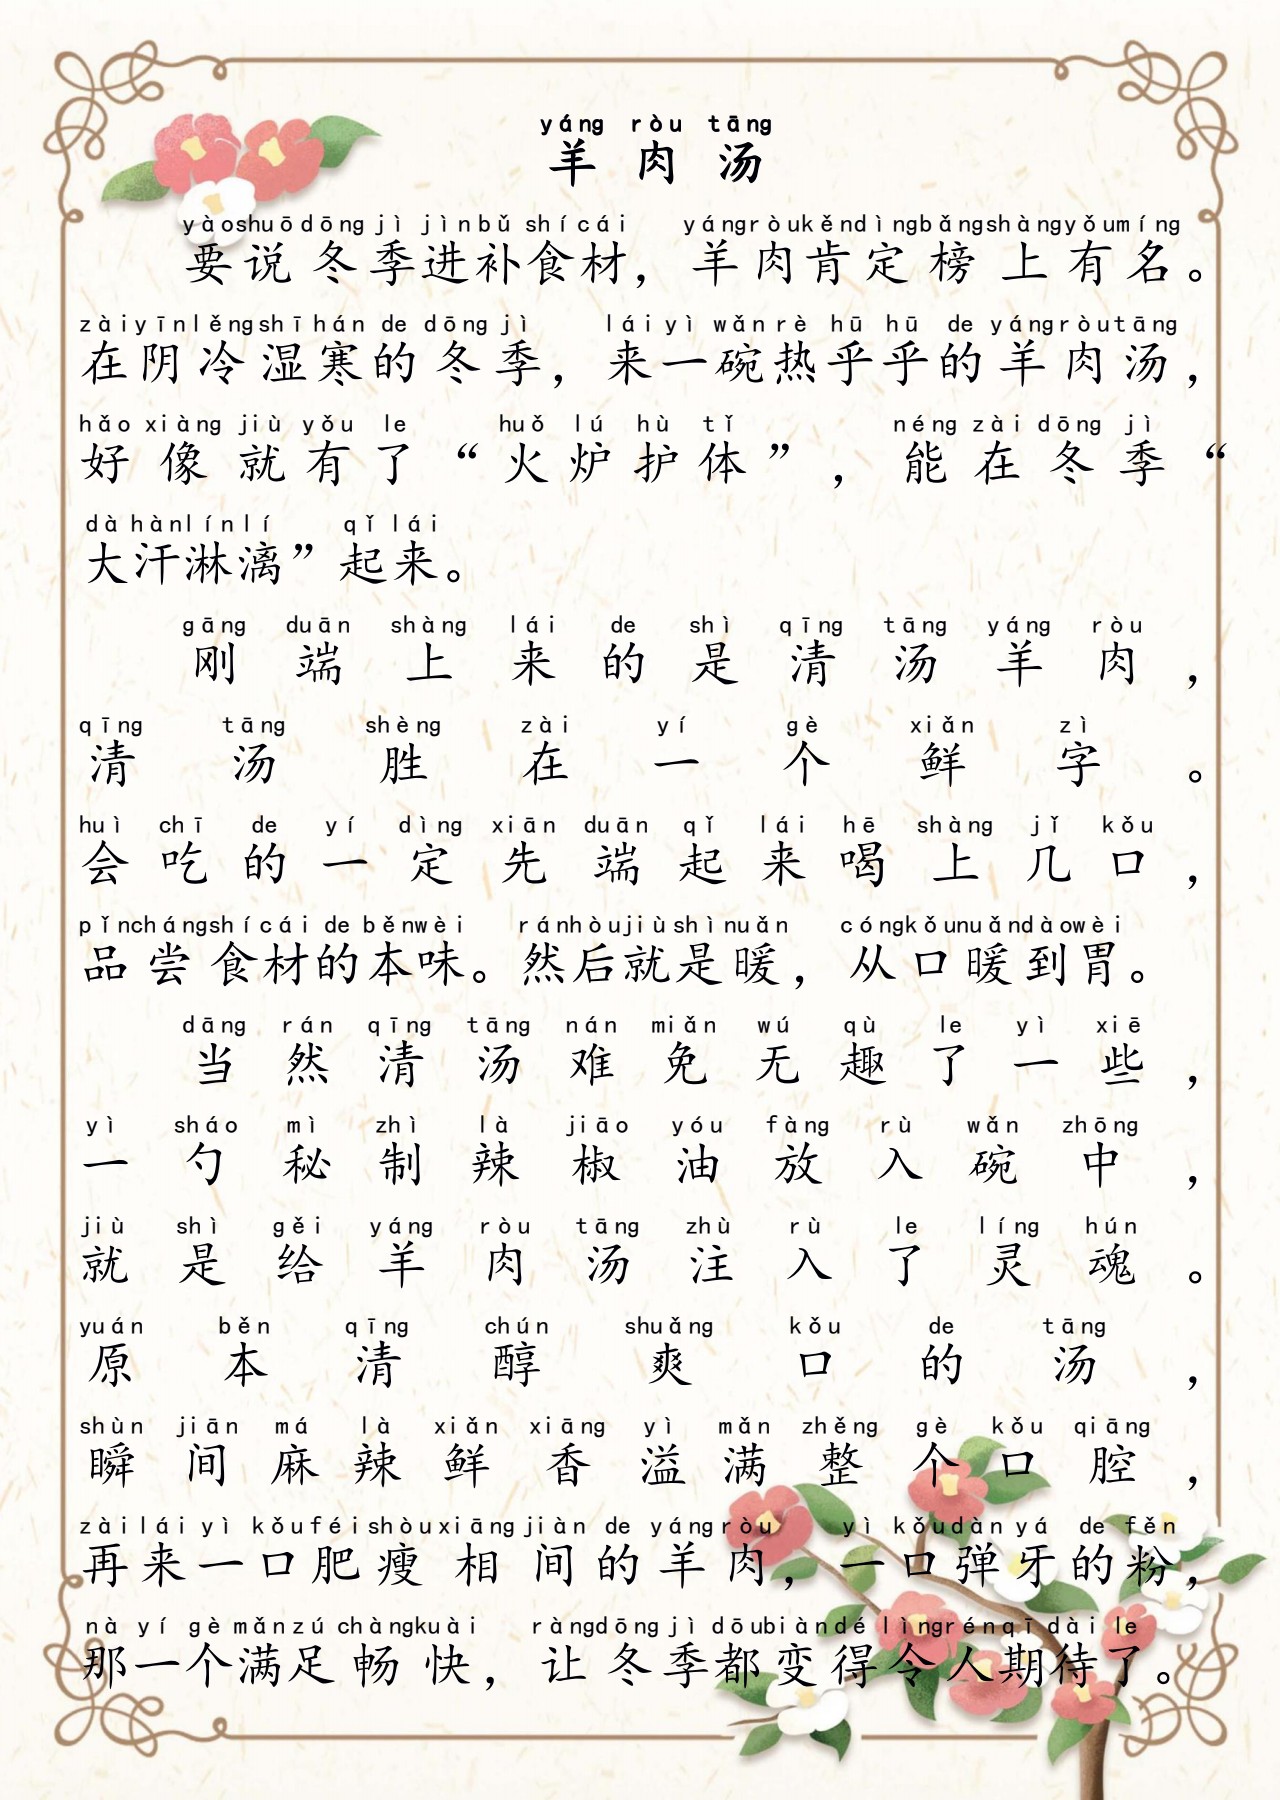 yáng ròu tāng
羊肉汤
yàoshuōdōng jì jìnbǔ shícái yángròukěndìngbǎngshàngyǒumíng
要说冬季进补食材，羊肉肯定榜上有名。
zàiyīnlěngshīhán de dōng jì láiyì wǎnrè hū hū de yángròutāng
在阴冷湿寒的冬季，来一碗热乎乎的羊肉汤，
hǎo xiàng jiù yǒu le huǒ lú hù tǐ néng zài dōng jì
好像就有了“火炉护体”，能在冬季“
dà hànlínlí qǐ lái
大汗淋漓”起来。
gāng duān shàng lái de shì qīng tāng yáng ròu
刚端上来的是清汤羊肉，
qīng tāng shèng zài yí gè xiǎn zì
清汤胜在一个鲜字。
huì chī de yí dìng xiān duān qǐ lái hē shàng jǐ kǒu
会吃的一定先端起来喝上几口，
pǐnchángshícái de běnwèi ránhòujiùshìnuǎn cóngkǒunuǎndàowèi
品尝食材的本味。然后就是暖，从口暖到胃。
dāng rán qīng tāng nán miǎn wú qù le yì xiē
当然清汤难免无趣了一些，
yì sháo mì zhì là jiāo yóu fàng rù wǎn zhōng
一勺秘制辣椒油放入碗中，
jiù shì gěi yáng ròu tāng zhù rù le líng hún
就是给羊肉汤注入了灵魂。
yuán běn qīng chún shuǎng kǒu de tāng
原本清醇爽口的汤，
shùn jiān má là xiǎn xiāng yì mǎn zhěng gè kǒu qiāng
瞬间麻辣鲜香溢满整个口腔，
zàilái yì kǒuféishòuxiāngjiàn de yángròu yì kǒudàn yá de fěn
再来一口肥瘦相间的羊肉，一口弹牙的粉，
nà yí gè mǎnzú chàngkuài ràngdōng jì dōubiàndé lìngrénqī dài le
那一个满足畅快，让冬季都变得令人期待了。